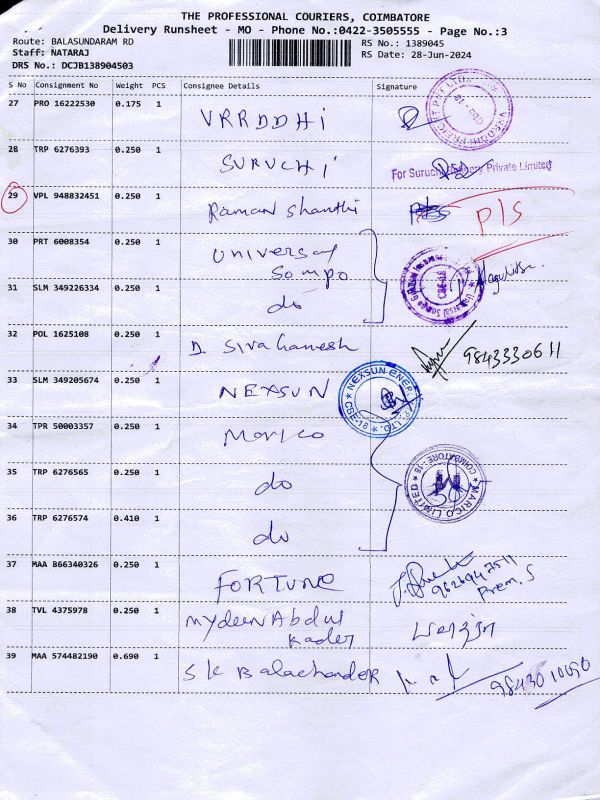 THE PROFESSIONAL COURIERS, COIMBATORE
Delivery Runsheet - MO - Phone No.:0422-3505555 - Page No.:3
Route: BALASUNDARAM RD
RS No.: 1389045
Staff: NATARAJ
RS Date: 28-Jun-2024
DRS No.: DCJB138904503
S No Consignment No Weight PCS Consignee Details Signature
27 PRO 16222530 0.175 1 VRRDDHI
28 TRP 6276393 0.250 1 SURUCHI For Suruchi Private Limited
29 VPL 948832451 0.250 1 Raman Shanthi Pls
30 PRT 6008354 0.250 1 Universal
Sompo
31 SLM 349226334 0.250 1 do
CBE-18
32 POL 1625108 0.250 1 D. Siva Ganesh 9843330611
33 SLM 349205674 0.250 1 NEXSUN
NEXSUN ENER LTD. CBE-18
34 TPR 50003357 0.250 1 Marico
35 TRP 6276565 0.250 1 do
MARICO LIMITED COIMBATORE - 18
36 TRP 6276574 0.410 1 do
37 MAA 866340326 0.250 1 FORTUNE 9626947511
Prem. S
38 TVL 4375978 0.250 1 Mydeen Abdul
Kader
39 MAA 574482190 0.690 1 S K Balachander 9843010090